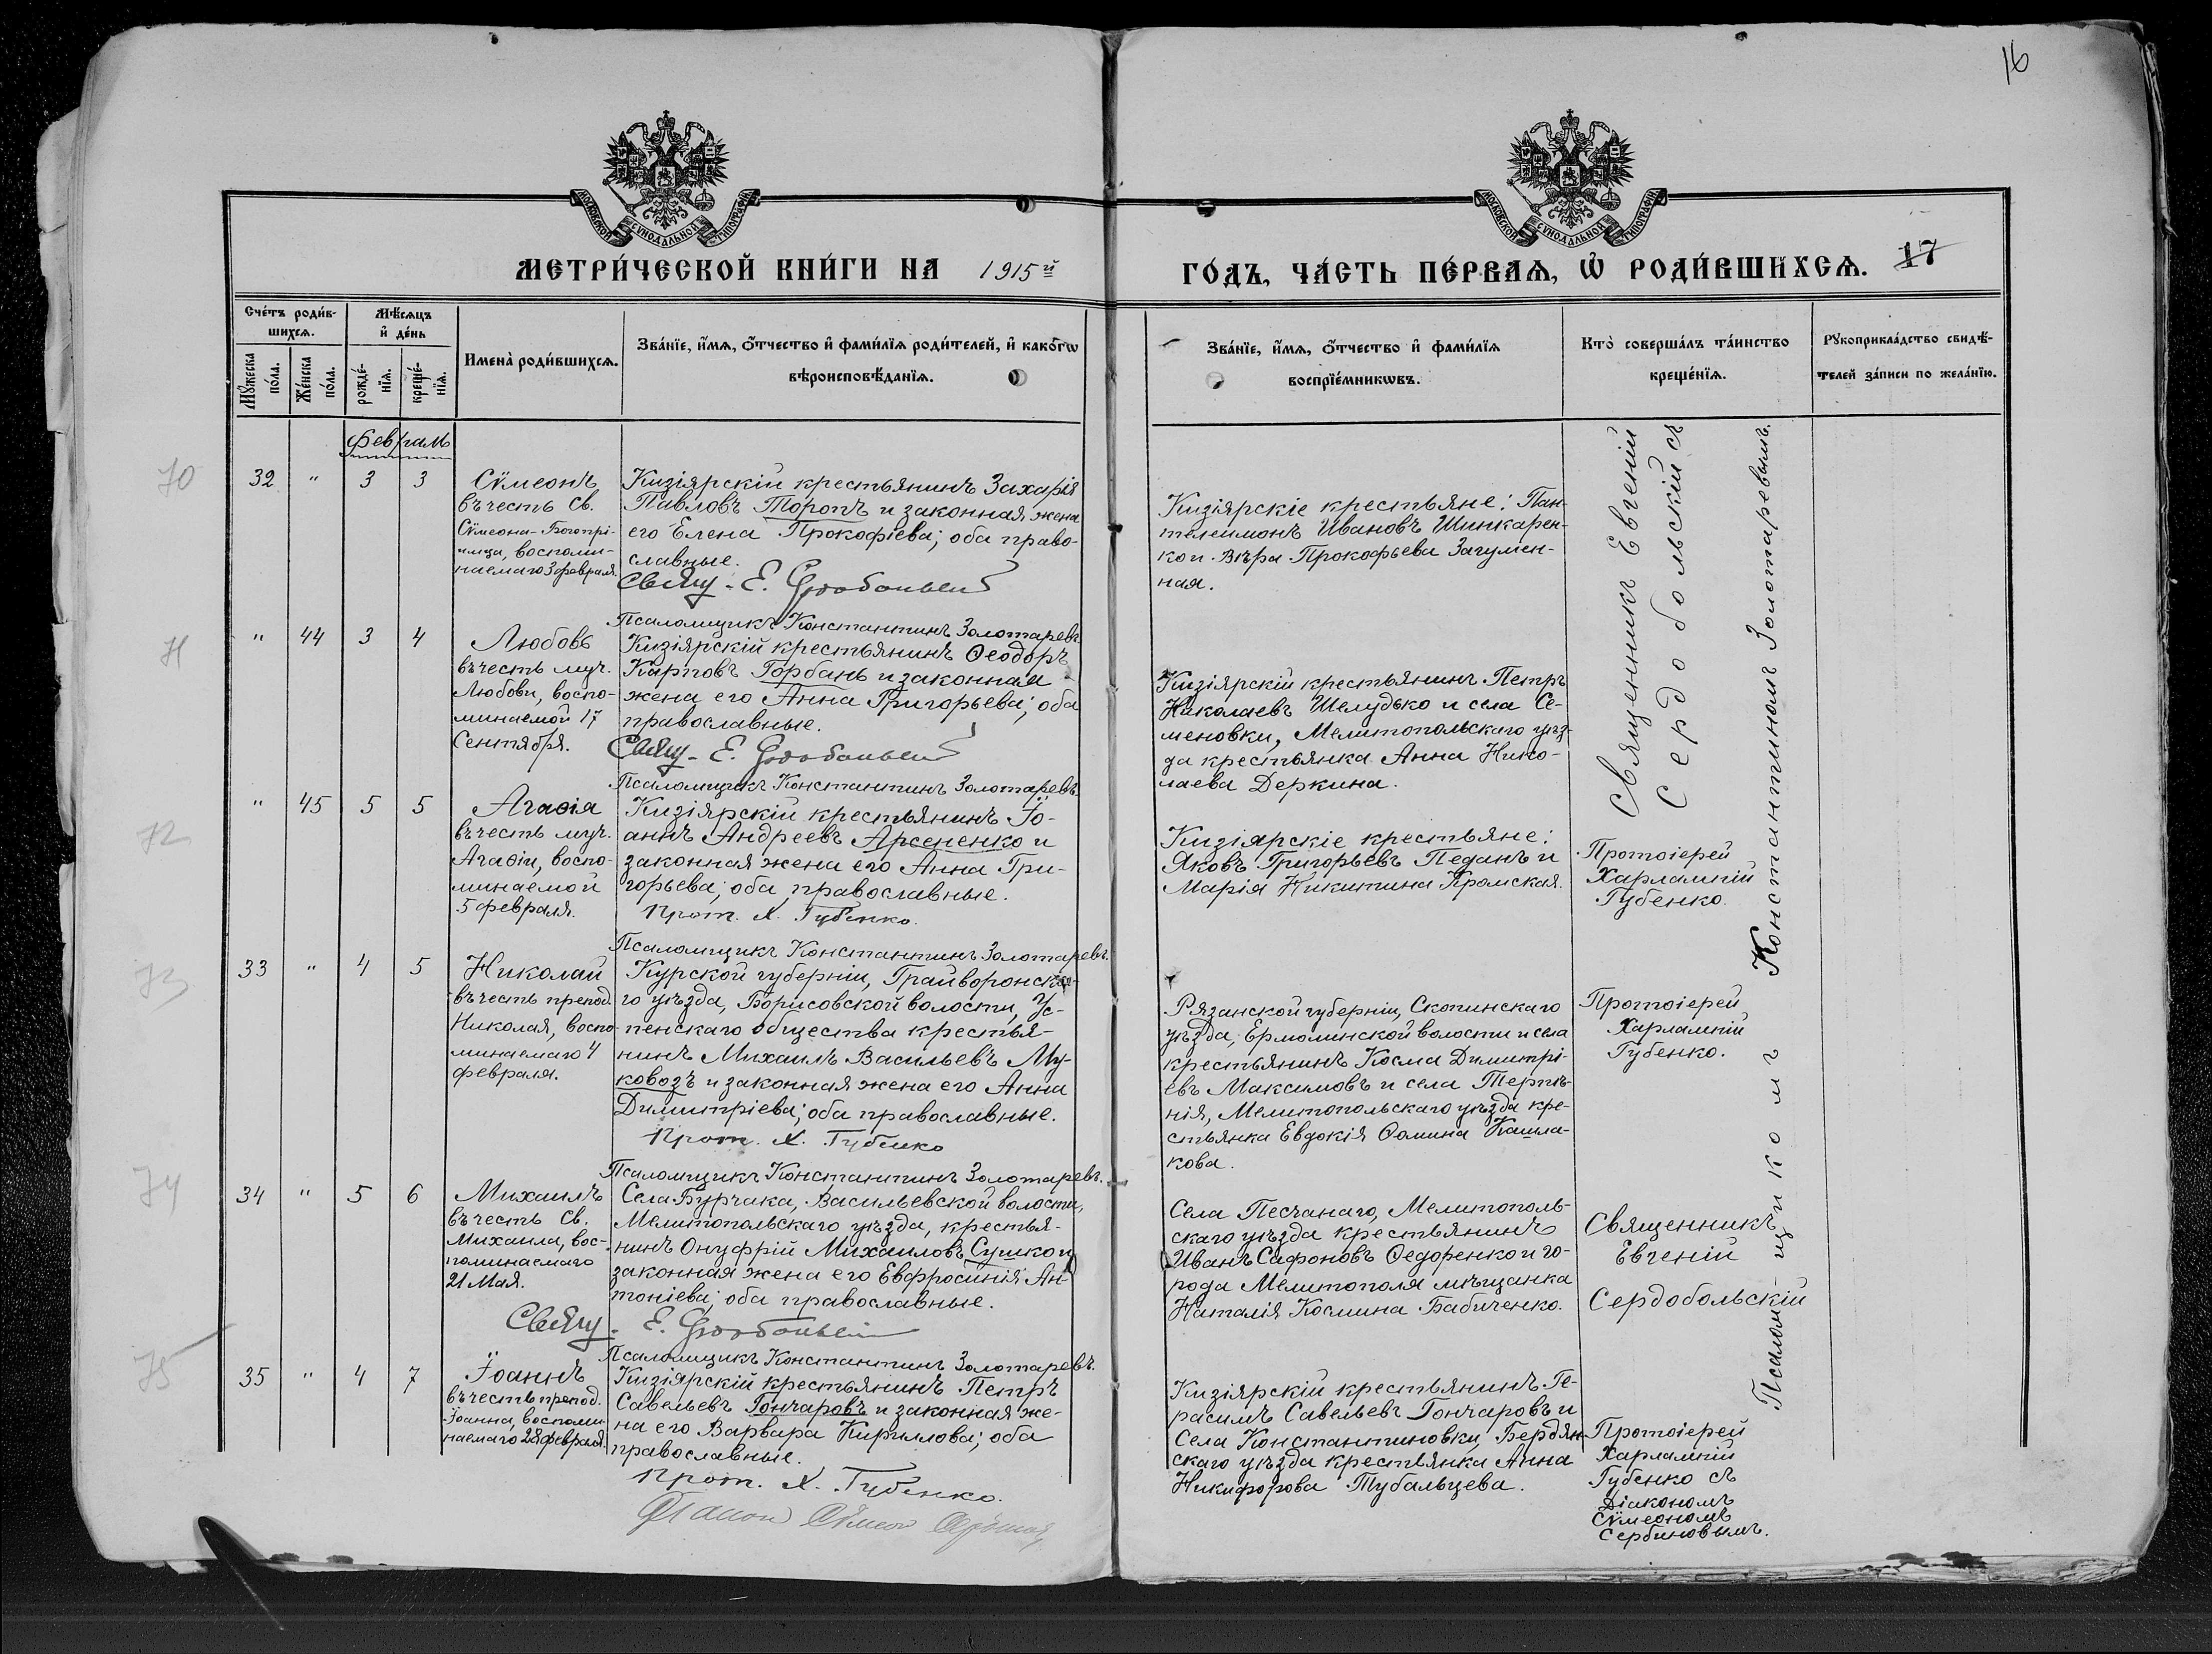 16
МОСКОВСКОЙ СѴНОДАЛЬНОЙ ТИПОГРАФІИ
МОСКОВСКОЙ СѴНОДАЛЬНОЙ ТИПОГРАФІИ
МЕТРИ́ЧЕСКОЙ КНИ́ГИ НА 1915й
ГО́ДЪ, ЧА́СТЬ ПЕ́РВАѦ, Ѡ҆ РОДИ́ВШИХСѦ. 17
Сче́тъ роди́в-
шихсѧ.
Мꙋ́жеска
по́ла.
Же́нска
по́ла.
Мѣ́сѧцъ
и҆ де́нь
рожде́-
нїѧ.
креще́-
нїѧ.
Имена̀ роди́вшихсѧ.
Зва́нїе, и҆́мѧ, ѻ҆́тчество и҆ фами́лїѧ роди́телей, и҆ како́гѡ
вѣроисповѣ́данїѧ.
Зва́нїе, и҆́мѧ, ѻ҆́тчество и҆ фами́лїѧ
воспрїе́мникѡвъ.
Кто̀ соверша́лъ та́инство
креще́нїѧ.
Рꙋкоприкла́дство свидѣ́-
телей за́писи по жела́нїю.
Февраль
70
32 " 3 3
Сѵмеонъ
въ честь св.
Сѵмеона-Богопрі-
имца, воспоми-
наемаго 3 февраля.
Кизіярскій крестьянинъ Захарія
Павловъ Торопъ и законная жена
его Елена Прокофіева; оба право-
славные.
Свящ. Е. Сердобольскій
Псаломщикъ Константинъ Золотаревъ
Кизіярскіе крестьяне: Пан-
телеимонъ Ивановъ Шинкарен-
ко и Вѣра Прокофьева Загумен-
ная.
Священникъ Евгеній
Сердобольскій съ
Псаломщикомъ Константиномъ Золотаревымъ.
71
" 44 3 4
Любовь
въ честь муч.
Любови, воспо-
минаемой 17
Сентября.
Кизіярскій крестьянинъ Ѳеодоръ
Карповъ Горбань и законная
жена его Анна Григорьева; оба
православные.
Свящ. Е. Сердобольскій
Псаломщикъ Константинъ Золотаревъ.
Кизіярскій крестьянинъ Петръ
Николаевъ Шелудько и села Се-
меновки, Мелитопольскаго уѣз-
да крестьянка Анна Нико-
лаева Деркина.
72
" 45 5 5
Агаѳія
въ честь муч.
Агаѳіи, воспо-
минаемой
5 февраля.
Кизіярскій крестьянинъ Іо-
аннъ Андреевъ Арсененко и
законная жена его Анна Гри-
горьева; оба православные.
Прот. Х. Губенко.
Псаломщикъ Константинъ Золотаревъ.
Кизіярскіе крестьяне:
Яковъ Григорьевъ Педанъ и
Марія Никитина Кромская.
Протоіерей
Харлампій
Губенко.
73
33 " 4 5
Николай
въ честь препод.
Николая, воспо-
минаемаго 4
февраля.
Курской губерніи, Грайворонска-
го уѣзда, Борисовской волости, Ус-
пенскаго общества крестья-
нинъ Михаилъ Васильевъ Му-
ковозъ и законная жена его Анна
Димитріева; оба православные.
Прот. Х. Губенко
Псаломщикъ Константинъ Золотаревъ.
Рязанской губерніи, Скопинскаго
уѣзда, Ермолинской волости и села
крестьянинъ Косма Димитрі-
евъ Максимовъ и села Терпѣ-
нія, Мелитопольскаго уѣзда кре-
стьянка Евдокія Ѳомина Кашла-
кова.
Протоіерей
Харлампій
Губенко.
74
34 " 5 6
Михаилъ
въ честь св.
Михаила, вос-
поминаемаго
21 Мая.
Села Бурчака, Васильевской волости,
Мелитопольскаго уѣзда, крестья-
нинъ Онуфрій Михаиловъ Сушко и
законная жена его Евфросинія Ан-
тоніева; оба православные.
Свящ. Е. Сердобольскій
Псаломщикъ Константинъ Золотаревъ.
Села Песчанаго, Мелитополь-
скаго уѣзда крестьянинъ
Иванъ Сафоновъ Ѳедоренко и го-
рода Мелитополя мѣщанка
Наталія Космина Бабиченко.
Священникъ
Евгеній
Сердобольскій
75
35 " 4 7
Іоаннъ
въ честь препод.
Іоанна, воспоми-
наемаго 28 февраля.
Кизіярскій крестьянинъ Петръ
Савельевъ Гончаровъ и законная же-
на его Варвара Кириллова; оба
православные.
Прот. Х. Губенко.
Кизіярскій крестьянинъ Ге-
расимъ Савельевъ Гончаровъ и
села Константиновки, Бердян-
скаго уѣзда крестьянка Анна
Никифорова Тубальцева.
Протоіерей
Харлампій
Губенко съ
Діакономъ
Сѵмеономъ
Сербиновымъ.